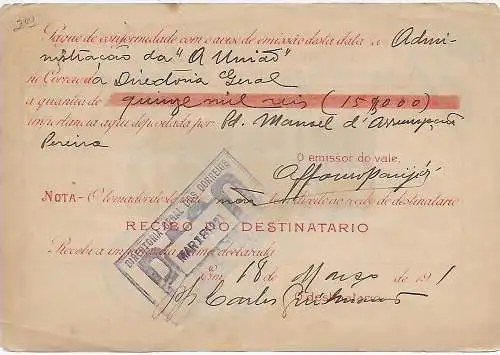 Pague de conformidade com o aviso de emissão desta data a Admi-
nistração da "A União"
no Correio da Directoria Geral
a quantia de quinze mil reis (15$000)
importancia aqui depositada por Pd. Manoel d'Assumpção
Pereira
O emissor do vale,
NOTA- O tomador deste não direito ao de destinatario
RECIBO DO DESTINATARIO
Recebi a importancia declarada
Em, 18 de Março de 1921
pp Carlos
O destinatario
DIRECTORIA GERAL DOS CORREIOS
PAGO
MAR 18 1921